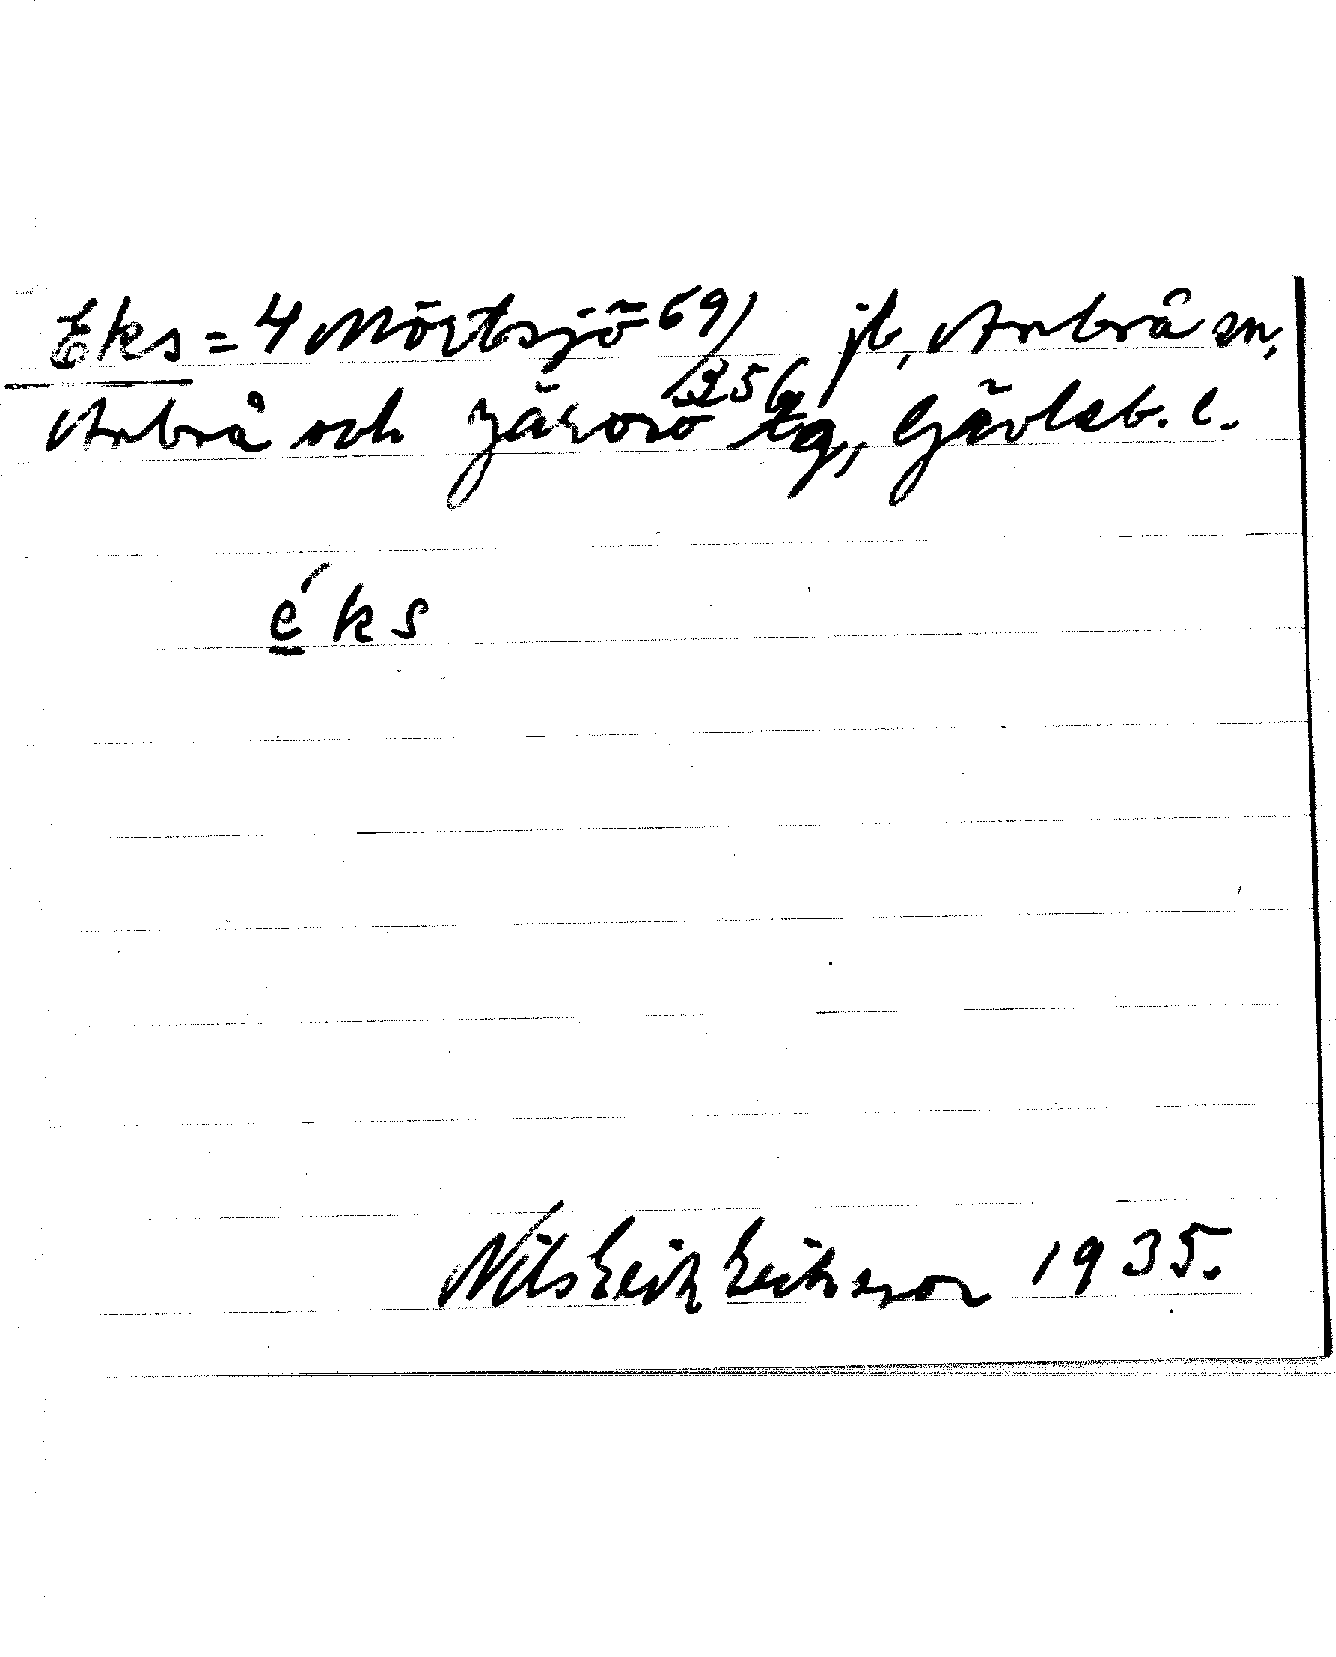 Eks = 4 Mörtsjö 69/356 jb, Arbrå sn,
Arbrå och Järvsö tg, Gävleb. l.
éks
Nils Erik Eriksson 1935.